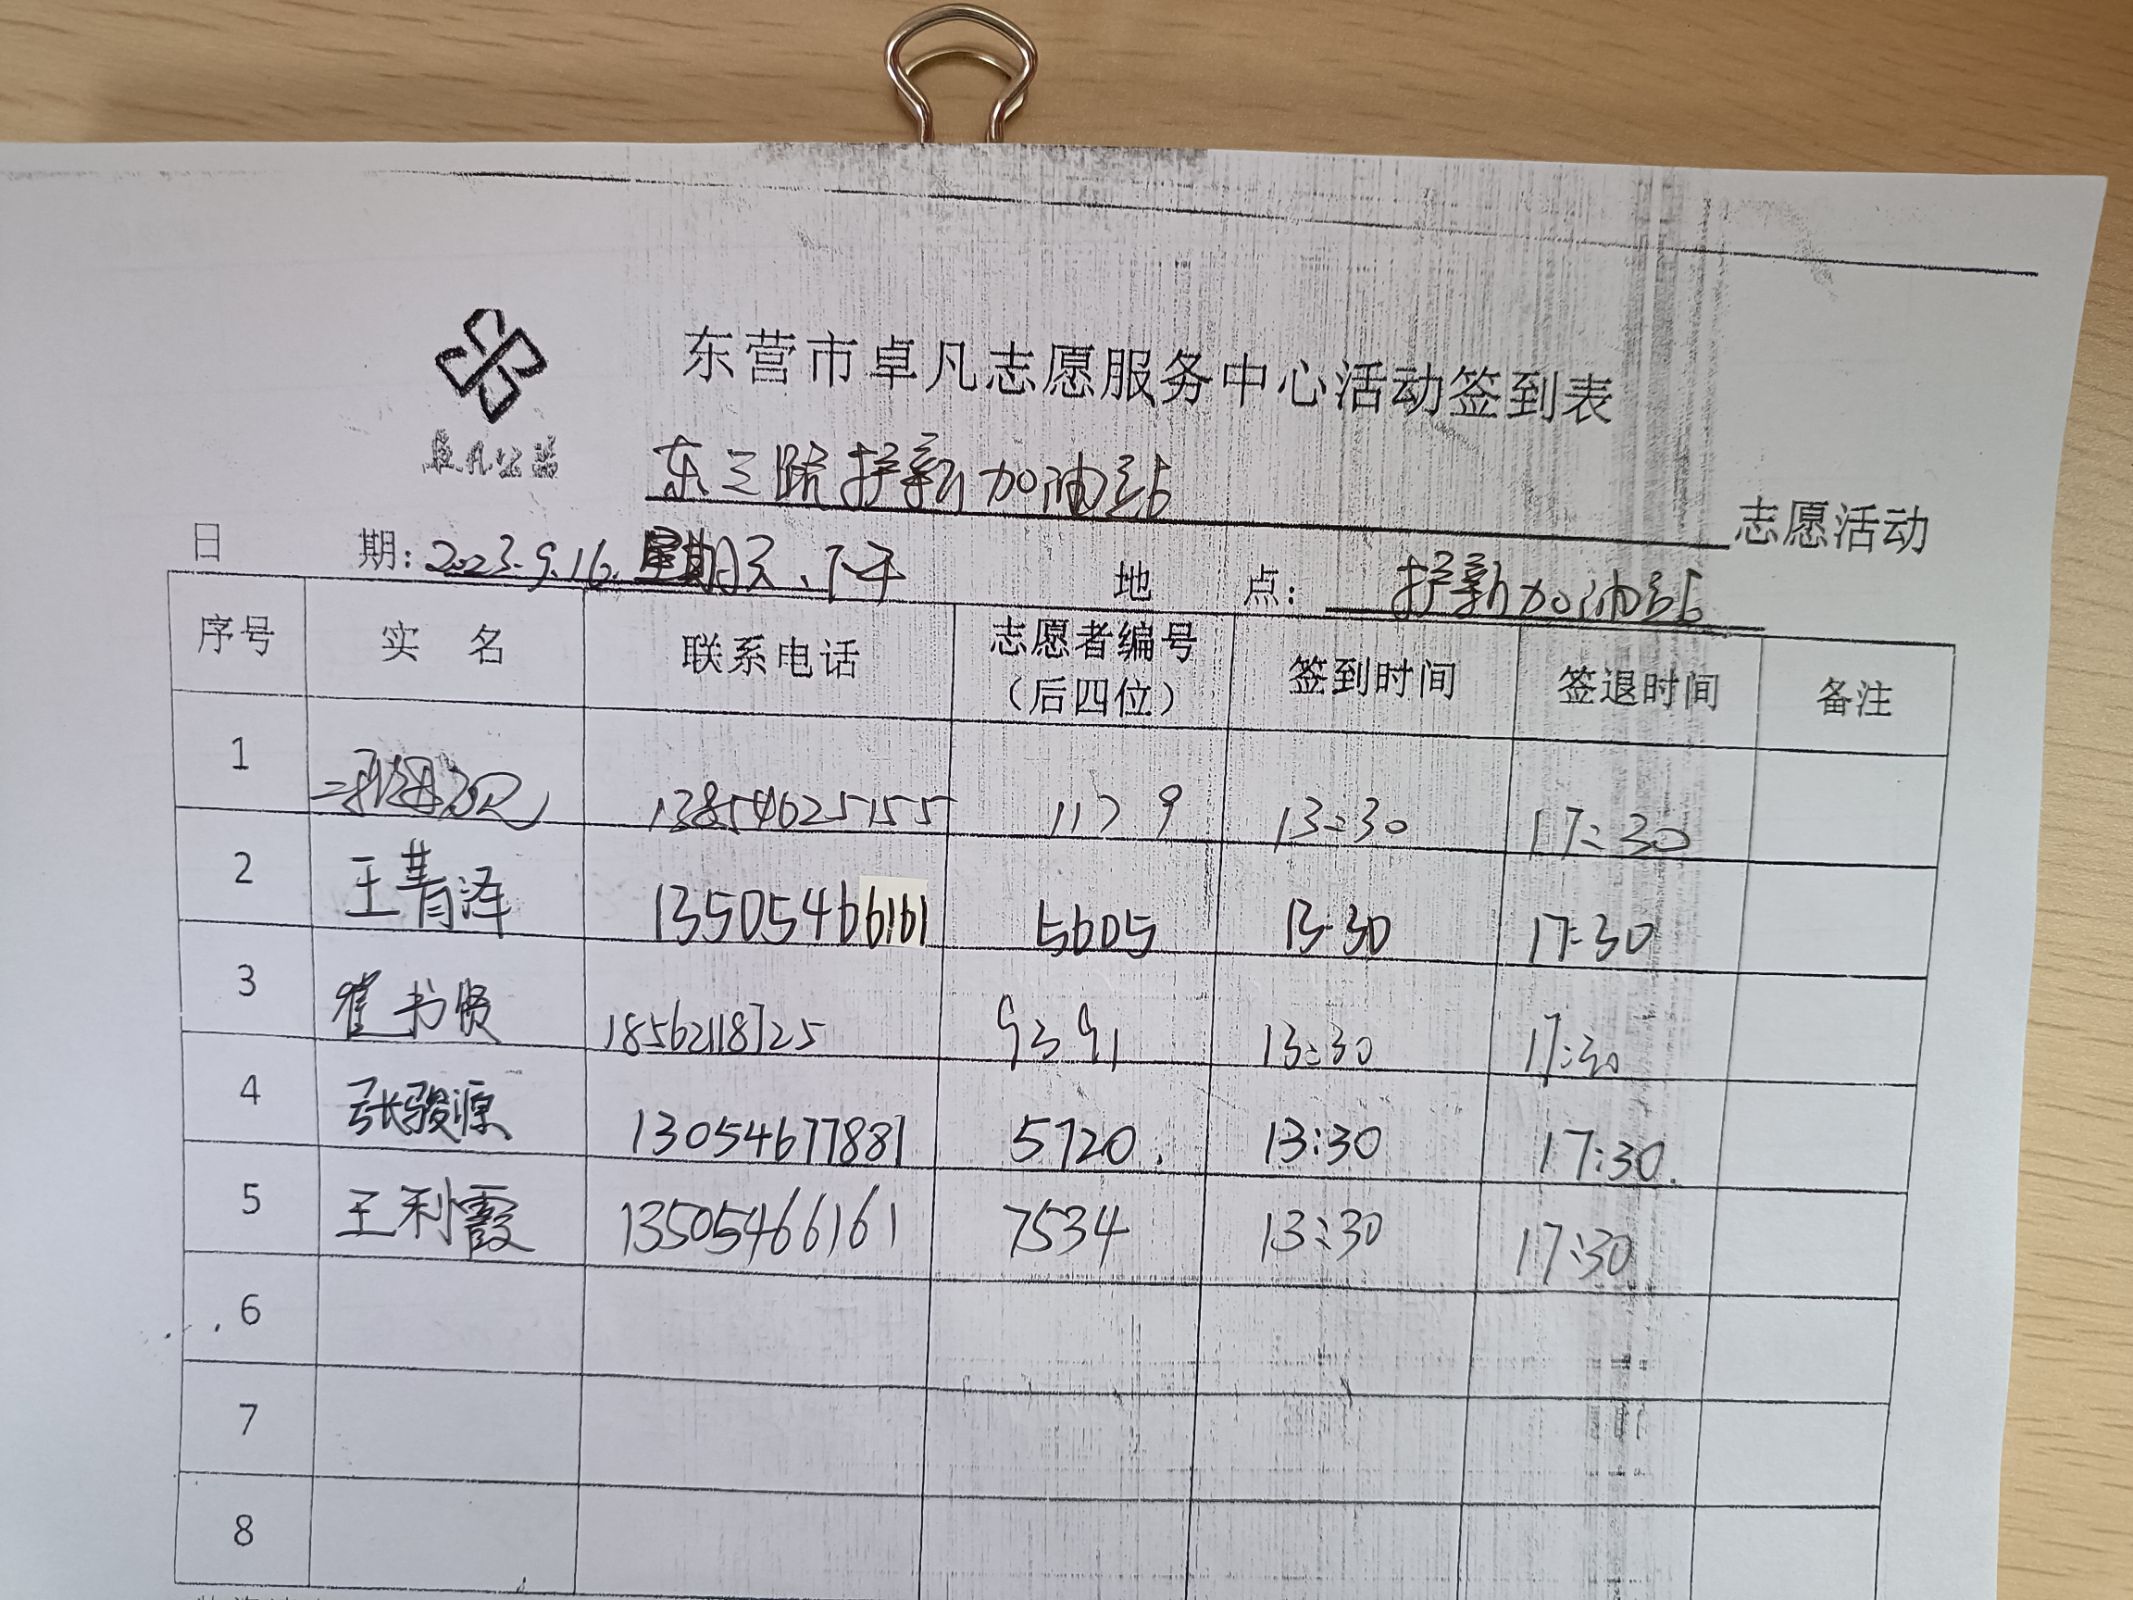 东营市卓凡志愿服务中心活动签到表
卓凡公益
东三路护新加油站 志愿活动
日 期: 2023.9.16. 星期天、下午 地 点: 护新加油站
序号 实 名 联系电话 志愿者编号（后四位） 签到时间 签退时间 备注
1 13854625155 1179 13:30 17:30
2 王菁泽 13505466161 5605 13:30 17:30
3 崔书贤 18562118725 9391 13:30 17:30
4 张骏源 13054677881 5720. 13:30 17:30.
5 王利霞 13505466161 7534 13:30 17:30
6
7
8